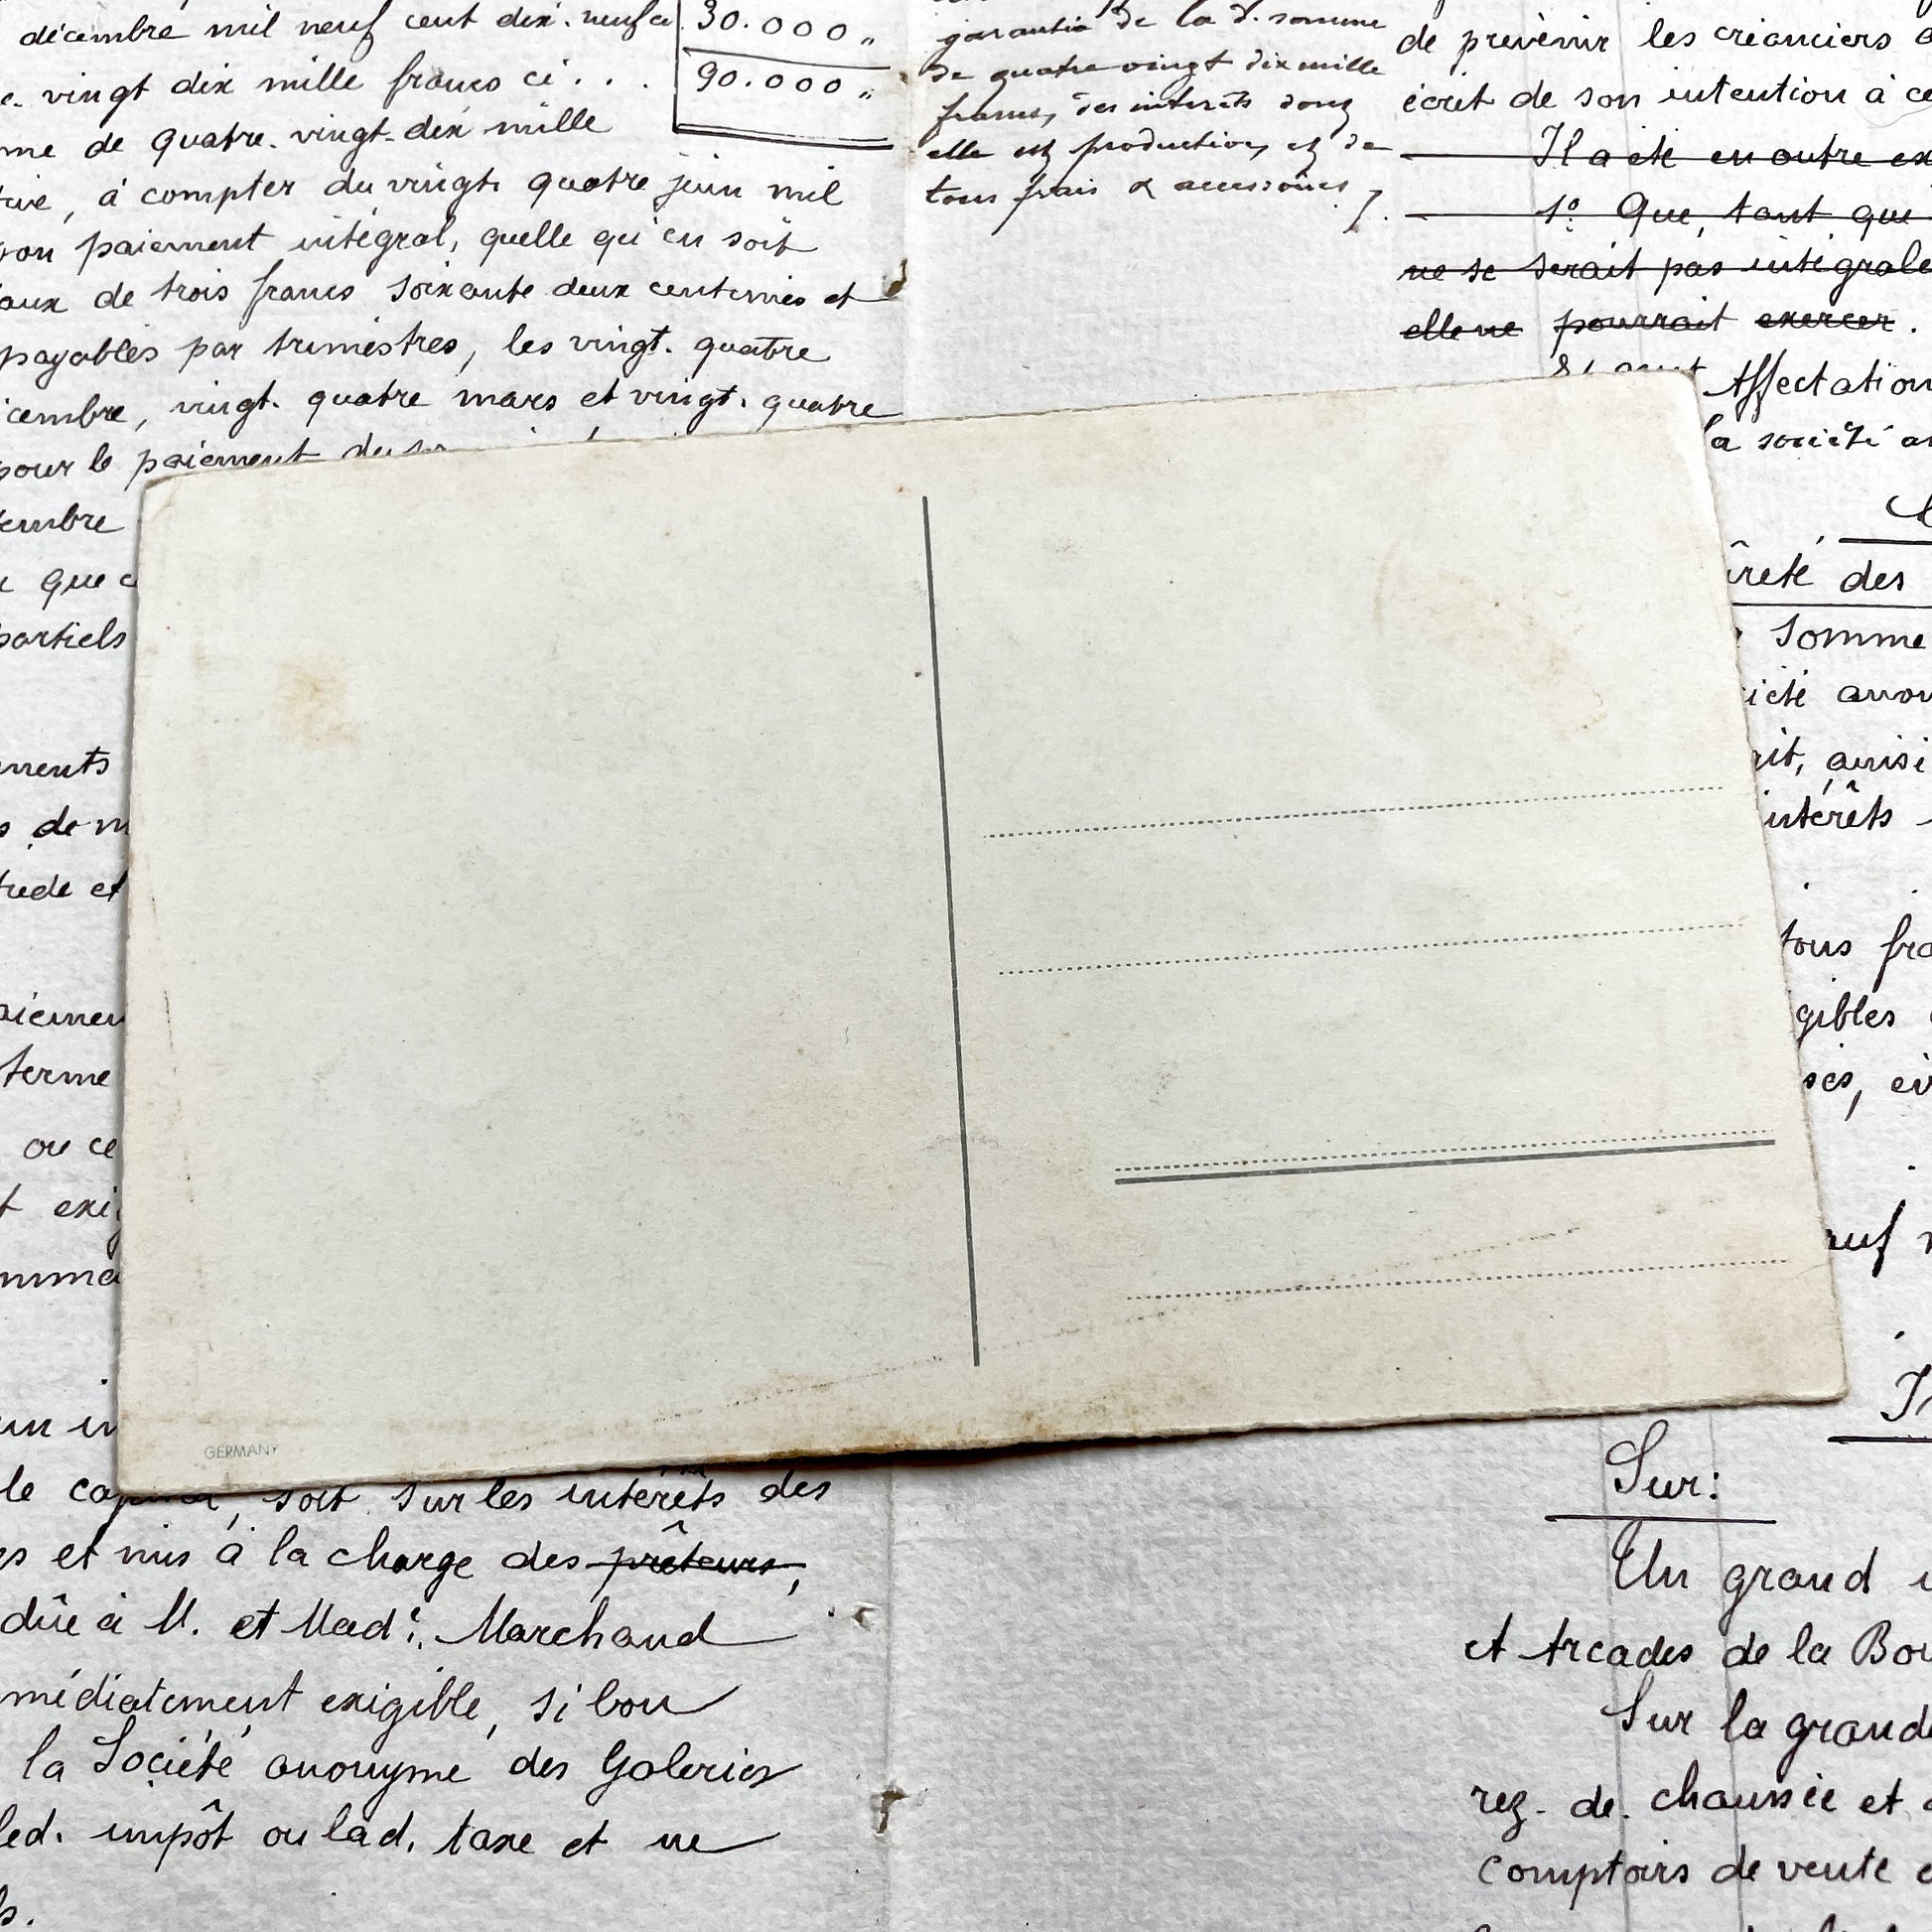 décembre mil neuf cent dix-neuf ci 30.000 „
vingt dix mille francs ci . . . 90.000 „
de quatre-vingt-dix mille
, à compter du vingt quatre juin mil
paiement intégral, quelle qu'en soit
de trois francs soixante deux centimes et
payables par trimestres, les vingt-quatre
cembre, vingt-quatre mars et vingt-quatre
pour le paiement
embre
que
partiels
ments
de
et
terme
ou ce
GERMANY
le soit sur les intérêts des
et mis à la charge des prêteurs,
dûe à M. et Made. Marchand
médiatement exigible, si bon
la Société anonyme des Galeries
led. impôt ou lad. taxe et ne
garantie de la d. somme
de quatre vingt dix mille
francs, des intérêts dont
elle est productive, et de
tous frais & accessoires /.
de prévenir les créanciers
écrit de son intention à ce
Il a été en outre
1º Que, tant que
ne se serait pas intégrale
elle ne pourrait exercer.
Affectation
la société
ûreté des
somme
ciété anony
ait, ainsi
intérêts
tous fra
gibles
ses,
euf
Sur:
Un grand
et Arcades de la Bou
Sur la grande
rez-de-chaussée et
comptoirs de vente